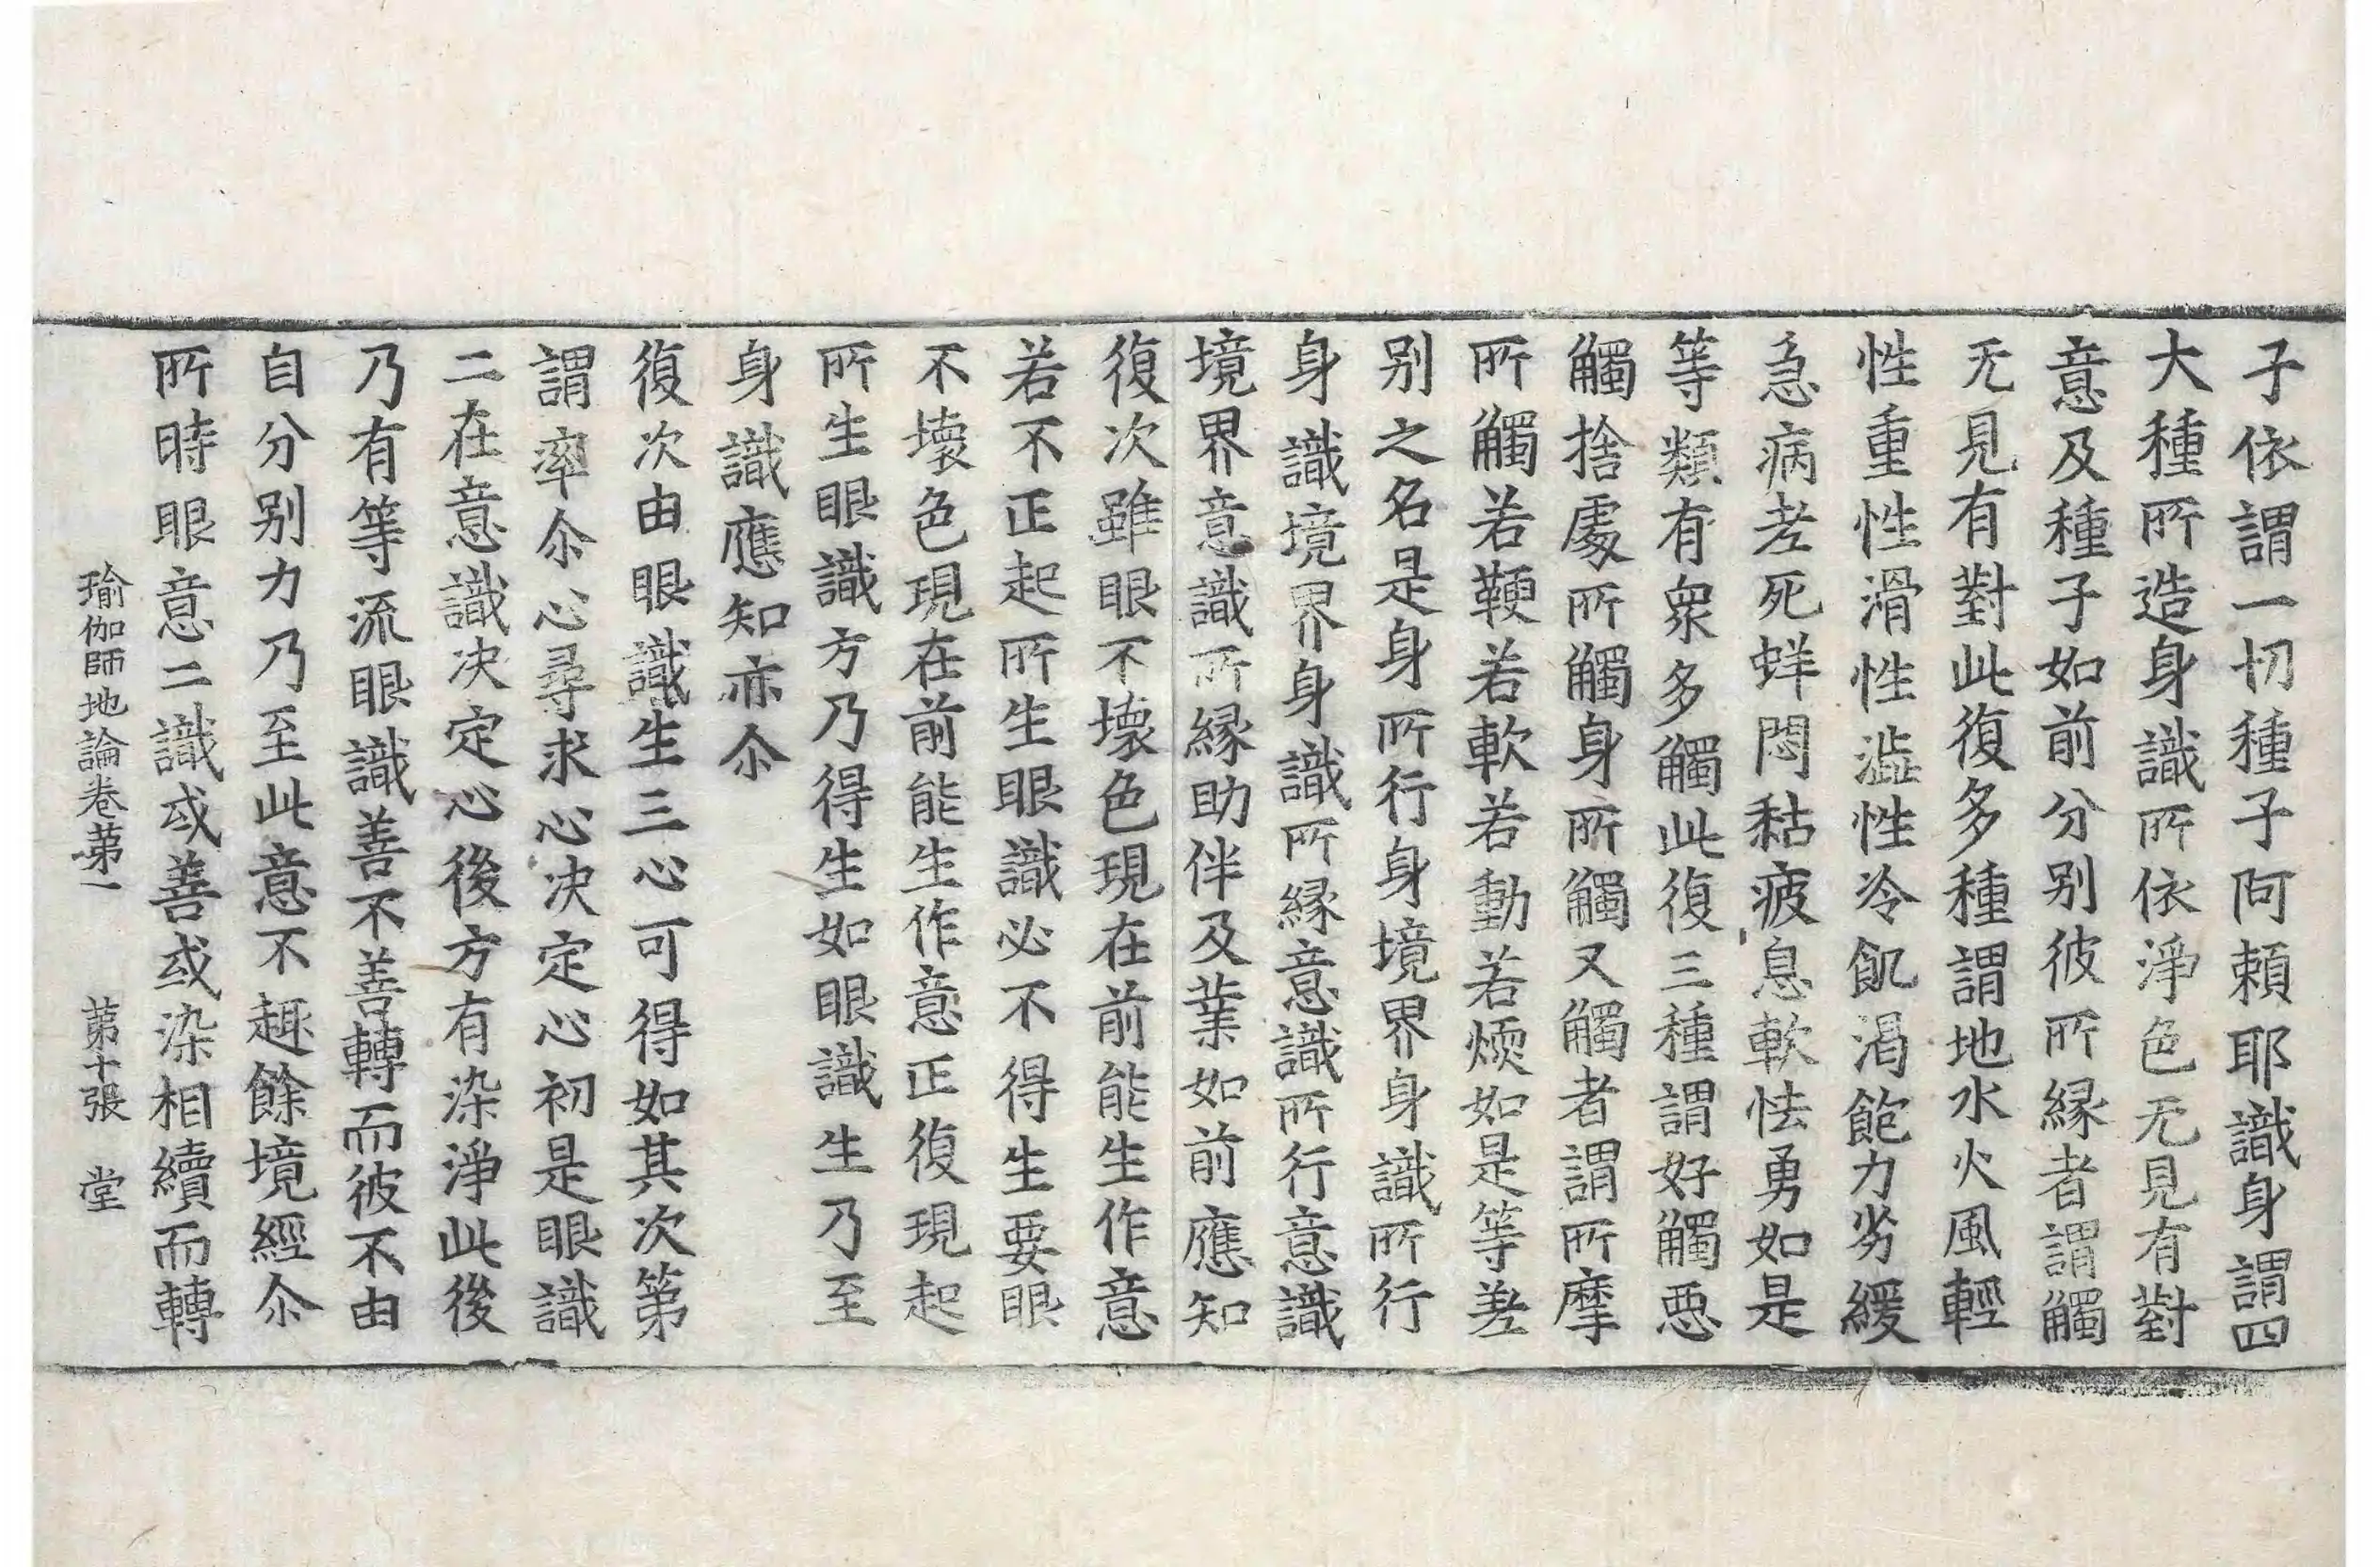 子依謂一切種子阿賴耶識身謂四
大種所造身識所依淨色无見有對
意及種子如前分別彼所緣者謂觸
无見有對此復多種謂地水火風輕
性重性滑性澁性冷飢渴飽力劣緩
急病老死蛘悶黏疲息軟怯勇如是
等類有衆多觸此復三種謂好觸惡
觸捨處所觸身所觸又觸者謂所摩
所觸若鞕若軟若動若煗如是等差
别之名是身所行身境界身識所行
身識境界身識所緣意識所行意識
境界意識所緣助伴及業如前應知
復次雖眼不壞色現在前能生作意
若不正起所生眼識必不得生要眼
不壞色現在前能生作意正復現起
所生眼識方乃得生如眼識生乃至
身識應知亦尒
復次由眼識生三心可得如其次第
謂率尒心尋求心决定心初是眼識
二在意識决定心後方有染淨此後
乃有等流眼識善不善轉而彼不由
自分别力乃至此意不趣餘境經尒
所時眼意二識或善或染相續而轉
瑜伽師地論卷第一　第十張　堂